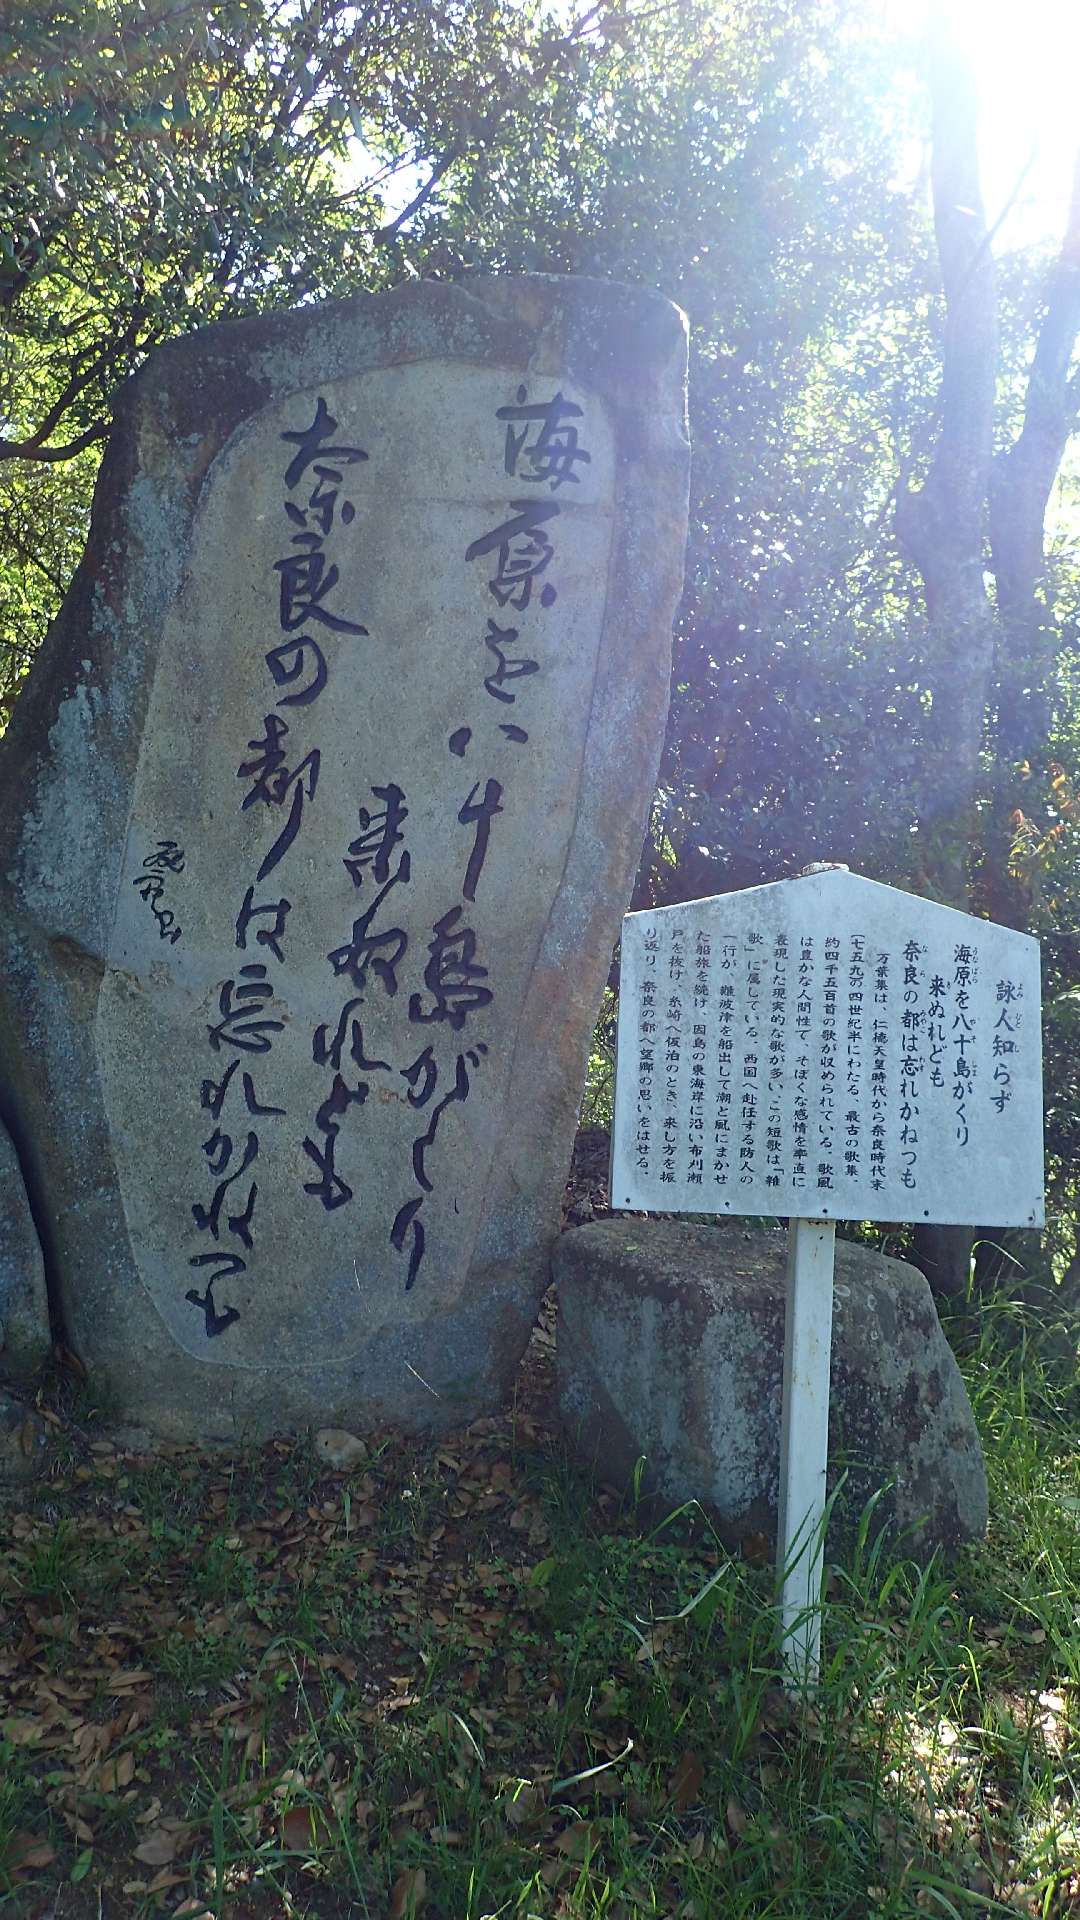 海原を八十島がくり
来ぬれども
奈良の都は忘れかねつも
詠人知らず
海原を八十島がくり
来ぬれども
奈良の都は忘れかねつも
万葉集は、仁徳天皇時代から奈良時代末
(七五九)の四世紀半にわたる、最古の歌集。
約四千五百首の歌が収められている。歌風
は豊かな人間性で、そぼくな感情を率直に
表現した現実的な歌が多い。この短歌は「雑
歌」に属している。西国へ赴任する防人の
一行が、難波津を船出して潮と風にまかせ
た船旅を続け、因島の東海岸に沿い布刈瀬
戸を抜け、糸崎へ仮泊のとき、来し方を振
り返り、奈良の都へ望郷の思いをはせる。